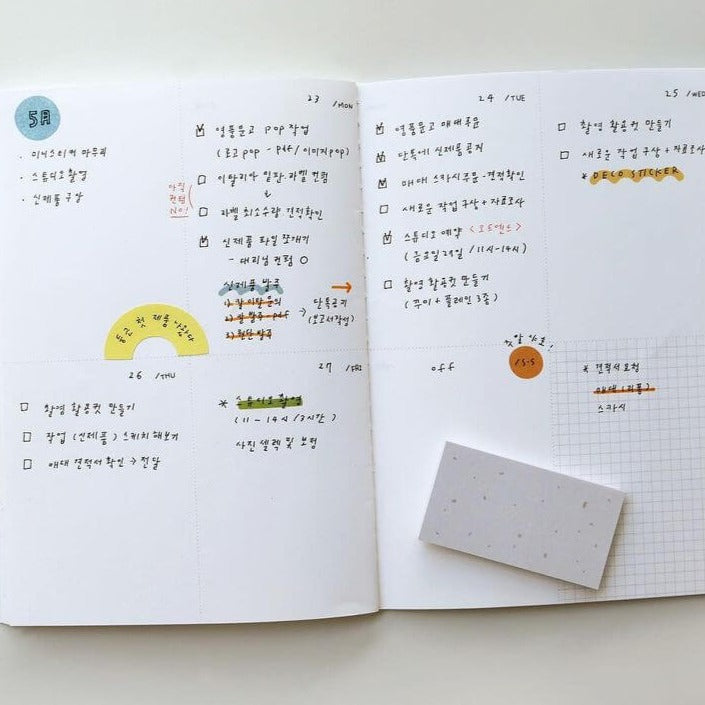 5月
· 미니스티커 마무리
· 스튜디오 촬영
· 신제품 구상
23 /MON
영풍문고 pop 작업
(로고 pop - pdf / 이미지 pop)
이탈리아 일판.라벨 컨펌
라벨 최소수량 견적확인
아직
컨펌
NO!
신제품 파일 쪼개기
- 대리님 컨펌 ○
신제품 발주
1) 칼이탈 문의
2) 발주 - pdf
3) 원단 발주
→ 단톡공기
(보고서작성)
첫 제품 나왔다
24 /TUE
영풍문고 매대
단톡에 신제품공지
매대 스카시주문 - 견적확인
새로운 작업 구상 + 자료조사
스튜디오 예약 <포트앤드>
(금요일 27일 / 11시-14시)
촬영 활용컷 만들기
(쭈이 + 플레인 3종)
25 /WED
촬영 활용컷 만들기
새로운 작업 구상 + 자료조사
* DECO STICKER
26 /THU
촬영 활용컷 만들기
작업 (신제품) 스케치 해보기
매대 견적서 확인 → 전달
27 /FRI
* 스튜디오 촬영
(11 - 14시 / 3시간)
사진 셀렉 및 보정
off
* 견적서 요청
매대 (리폼)
스카시